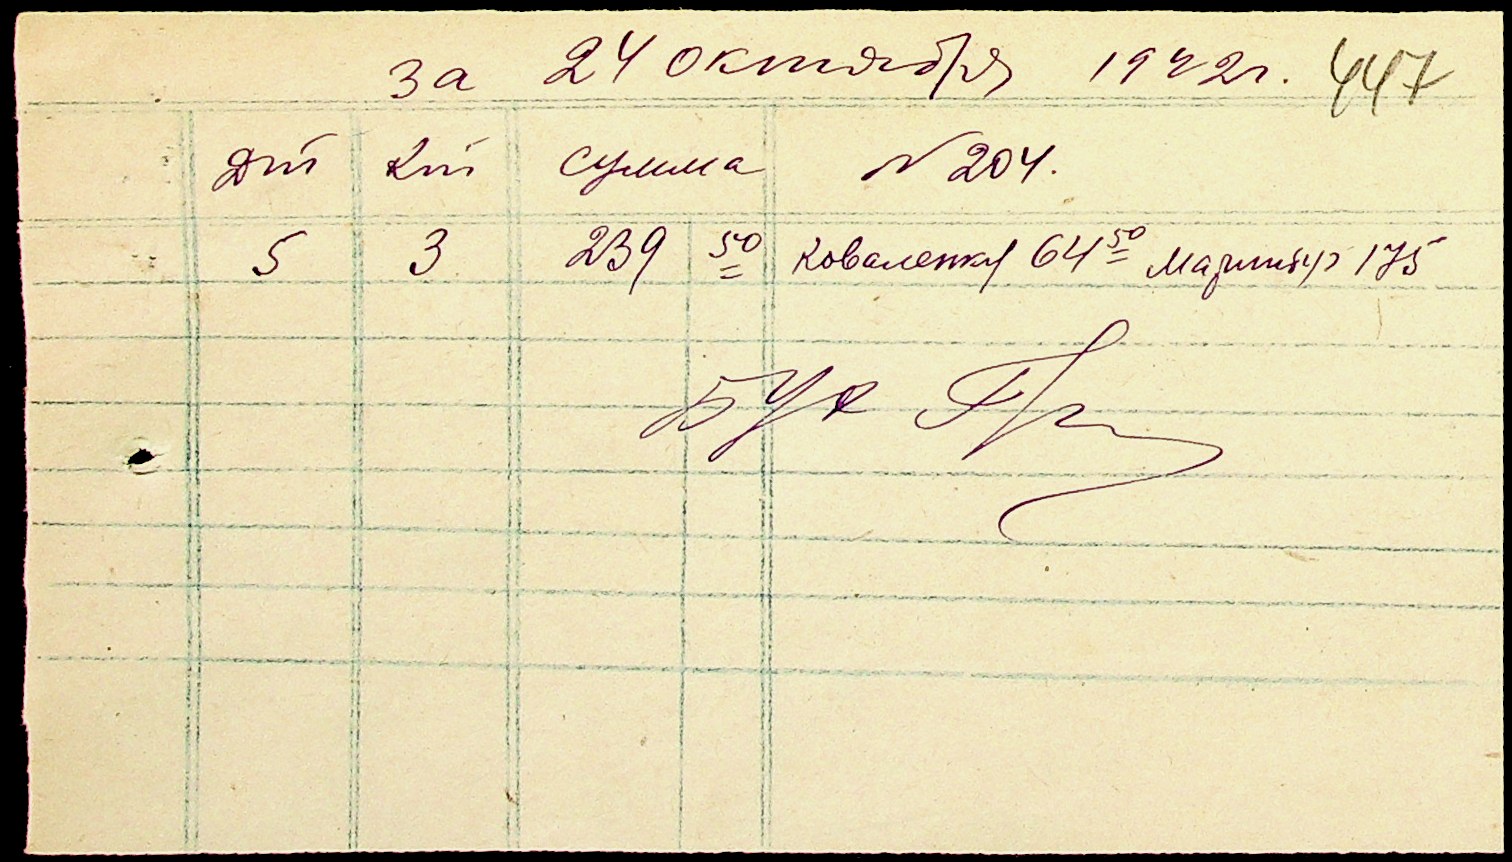 за 24 октября 1942г. 447
Дт Кт сумма № 204.
5 3 239 50 Коваленко 64 50 175
Бух